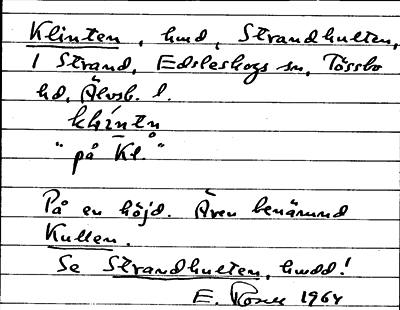 Klinten, hmd, Strandhulten,
1 Strand, Edsleskogs sn, Tössbo
hd, Älvsb. l.
klíntn
"på Kl."
På en höjd. Även benämnd
Kullen.
Se Strandhulten, hmdd!
E. 1964